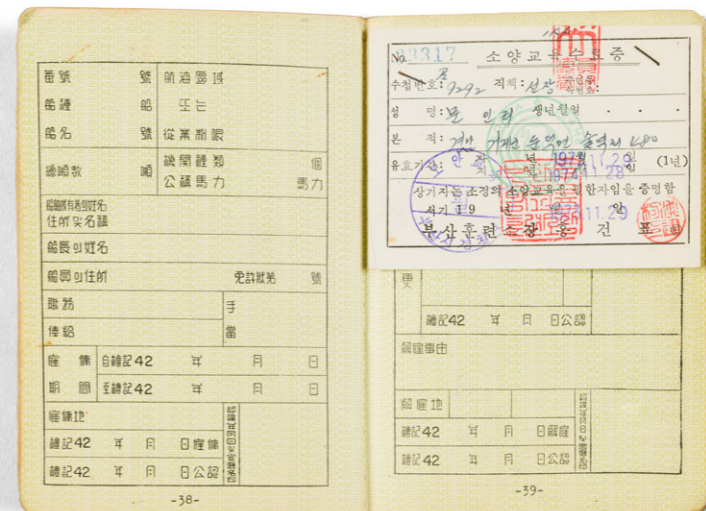 番號 號 航海區域
船種 船 또는
船名 號 從業制限
總噸數 噸 機關種類 個
公稱馬力 馬力
住所및名稱
船長의姓名
船員의住所 免許狀第 號
職務 手
俸給 當
雇傭 自檀記42 年 月 日
期間 至檀記42 年 月 日
雇傭地
檀記42 年 月 日雇傭
檀記42 年 月 日公認
-38-
No. 33317 소양교육수료증
수첩번호: 9292 직책: 선장
성 명: 문 인리 생년월일 . . .
본 적: 경남 거제
유효기간: 자 년 1973.11.29 일 (1년)
지 년 1974.11.28 일
상기자는 소정의 소양교육을 필한자임을 증명함
서기 19 년 1973.11.29 일
부산훈련소장 홍 건 표
更
檀記42 年 月 日公認
解雇事由
解雇地
檀記42 年 月 日解雇
檀記42 年 月 日公認
-39-